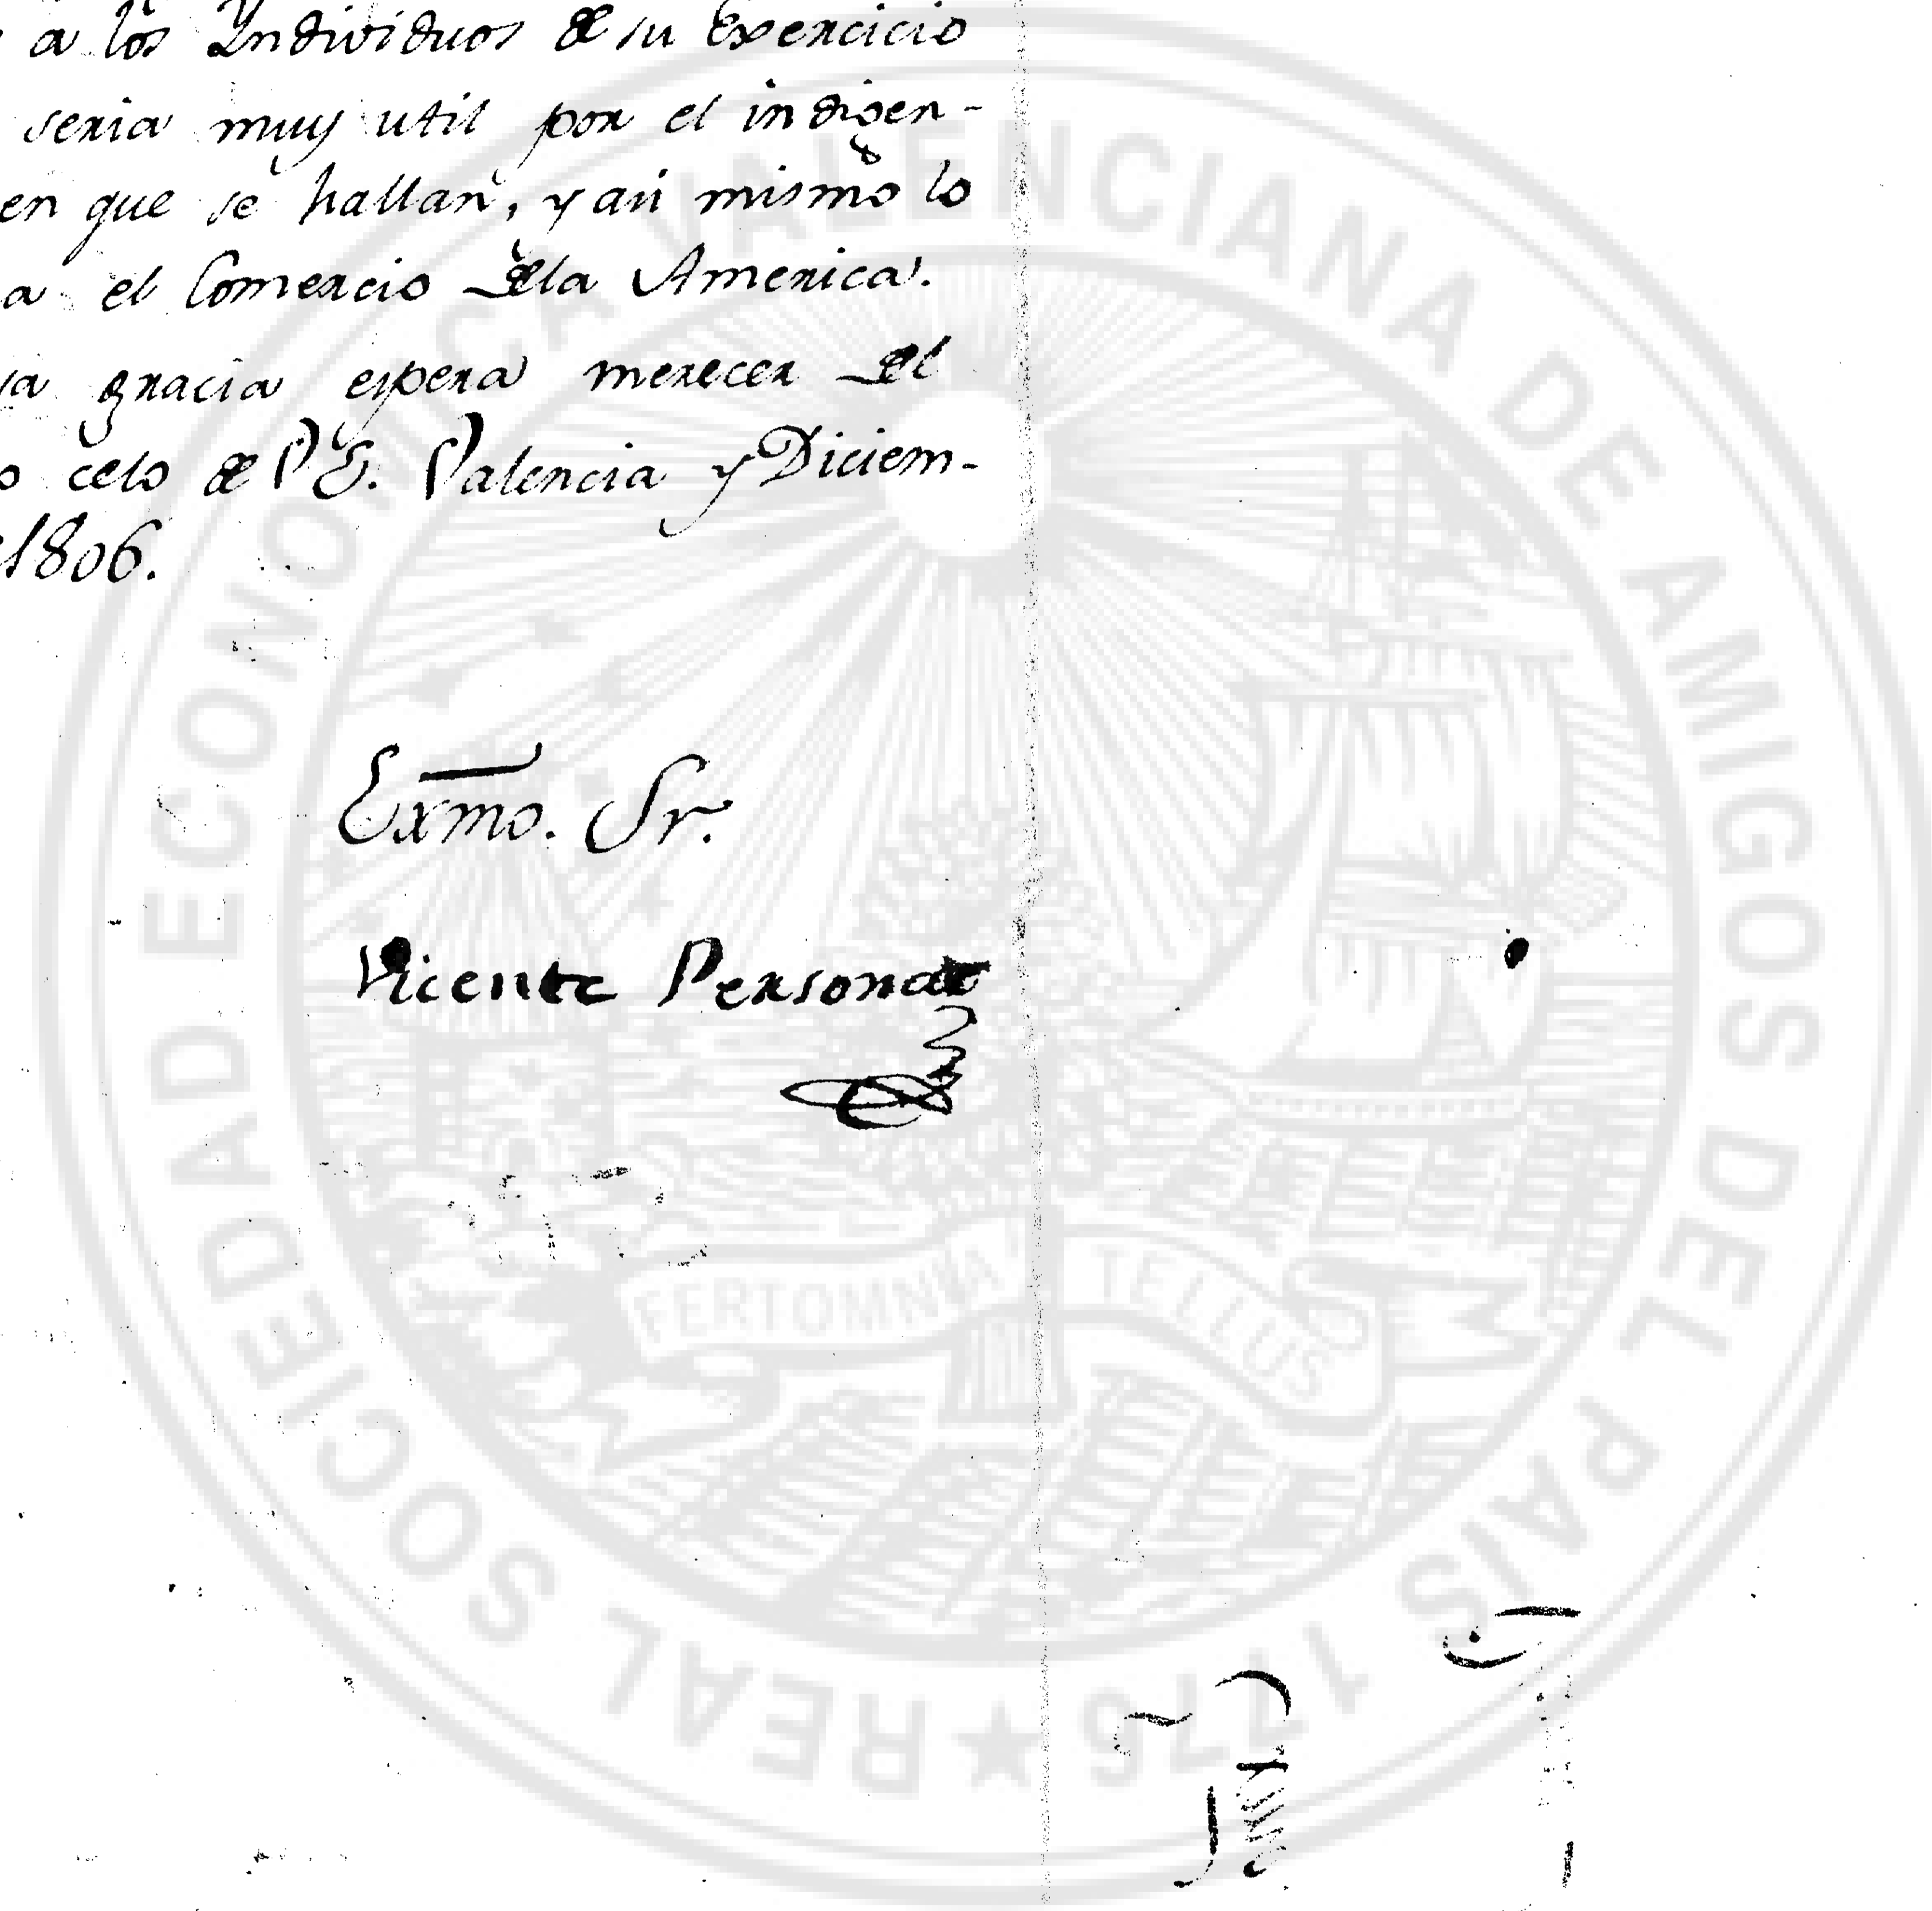 a los Individuos de su Exercicio
seria muy util por el indigen-
en que se hallan, y asi mismo lo
a el Comercio dela America.
gracia espera merecer del
celo de V.E. Valencia y Diciem-
1806.
Exmo. Sr.
Vicente Personat
REAL SOCIEDAD ECONOMICA VALENCIANA DE AMIGOS DEL PAIS 1776
FERTOMNIA TELLUS